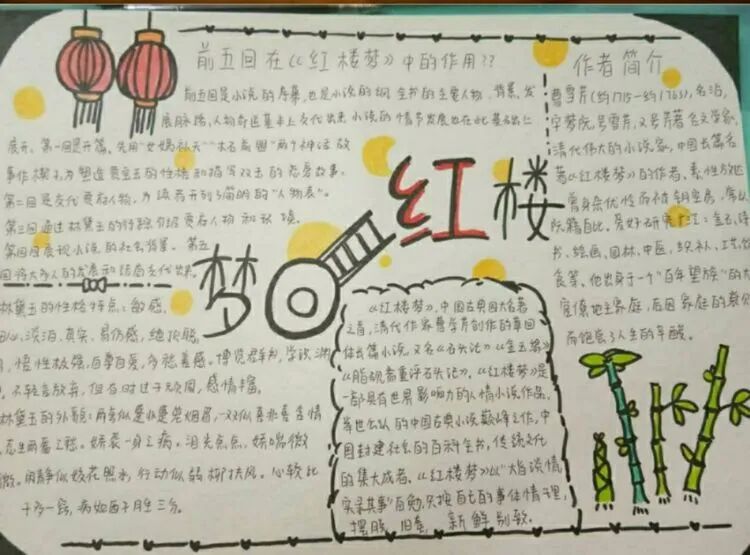 前五回在《红楼梦》中的作用??
前五回是小说的序幕,也是小说的纲 全书的主要人物、背景、发
展脉络,人物命运基本上交代出来 小说的情节发展也在此基础上
展开、第一回是开篇、先用"女娲补天""木石前盟"两个神话故
事作楔子,为塑造贾宝玉的性格和描写
第二回是交代贾府人物,为读者开列了简明的"人物表"。
第三回通过林黛玉的行踪介绍贾府人物和
第四回展现小说的社会背景。第五
作者简介
曹雪芹(约1715-约1763),名沾,
字梦阮,号雪芹,又号芹
清代伟大的小说家,中国长篇名
著《红楼梦》的作者。素性放达
爱好研究广泛:金石、诗
书、绘画、园林、中医、织补、工艺、饮
食等。他出身于一个"百年望族"的大
官僚地主家庭,后因家庭的衰败
而饱尝了人生的辛酸。
红楼
梦
林黛玉的性格特点:敏感、
细心、淡泊、真实、易伤感,绝顶聪
,悟性极强,自尊自爱,多愁善感。博览群书,学识渊
,不轻言放弃,但有时过于顽固,感情丰富。
林黛玉的外貌:两弯似蹙非蹙罥烟眉,一双似喜非喜含情
态生两靥之愁。娇袭一身之病。泪光点点,娇喘微
微。闲静似姣花照水,行动似弱柳扶风。心较比
干多一窍,病如西子胜三分。
《红楼梦》,中国古典四大名著
之首,清代作家曹雪芹创作的章回
体长篇小说 又名《石头记》《金玉缘》
《脂砚斋重评石头记》。《红楼梦》是
一部具有世界影响力的人情小说作品,
举世公认的中国古典小说巅峰之作,中
国封建社会的百科全书,传统文化
的集大成者。《红楼梦》以"大旨谈情,
实录其事"自勉,只按自己的事体情理,
摆脱 旧套, 新鲜别致。